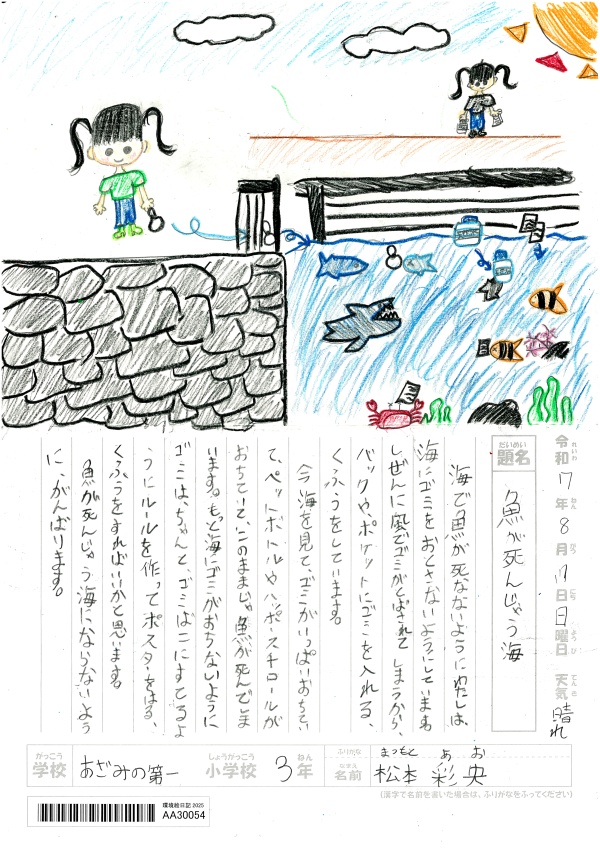 令和7年8月17日日曜日 天気 晴れ
れいわ ねん がつ にち ようび てんき
だいめい
題名 魚が死んじゃう海
海で魚が死なないようにわたしは、
海にゴミをおとさないようにしています。
しぜんに風でゴミがとばされてしまうから、
バックや、ポケットにゴミを入れる、
くふうをしています。
今海を見て、ゴミがいっぱいおちてい
て、ペットボトルやハッポースチロールが
おちていて、このままじゃ魚が死んでしま
います。もっと海にゴミがおちないように
ゴミは、ちゃんと、ゴミばこにすてるよ
うにルールを作ってポスターをはる、
くふうをすればいいかと思います。
魚が死んじゃう海にならないよう
に、がんばります。
がっこう しょうがっこう ねん ふりがな まつもと あお
学校 あざみの第一 小学校 3年 名前 松本 彩央
なまえ
(漢字で名前を書いた場合は、ふりがなをふってください)
環境絵日記 2025
AA30054